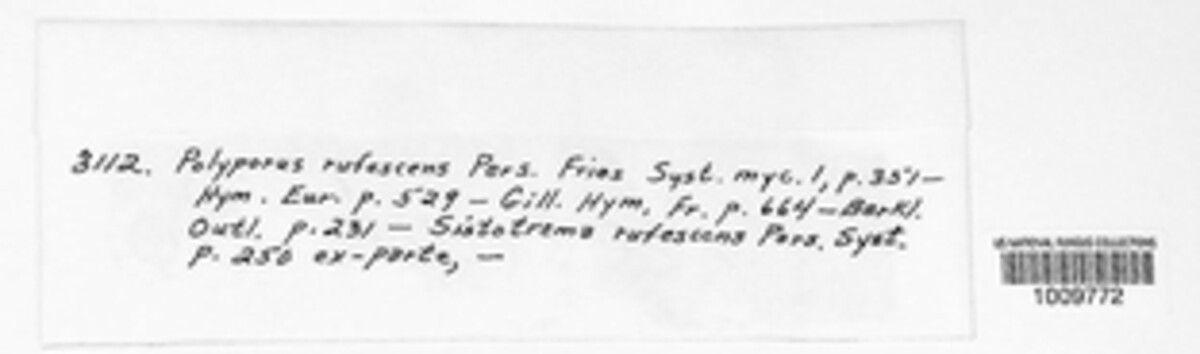 3112. Polyporus rufescens Pers. Fries Syst. myc. 1, p. 351—
Hym. Eur. p. 529 — Gill. Hym. Fr. p. 664 — Berkl.
Outl. p. 231 — Sistotrema rufescens Pers. Syst.
p. 250 ex-parte, —
US NATIONAL FUNGUS COLLECTIONS
1009772